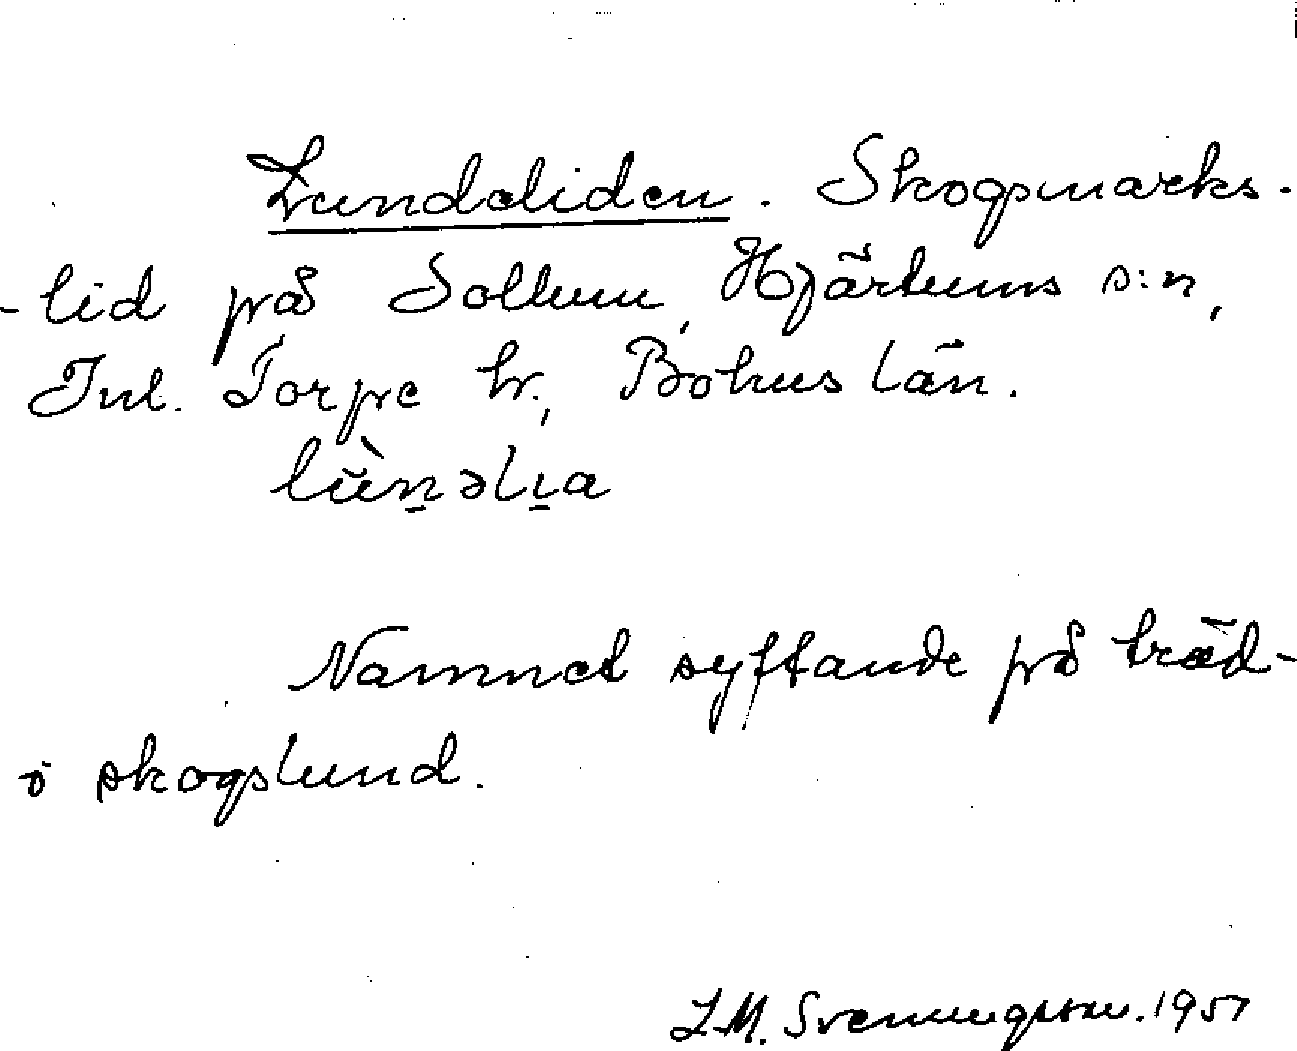 Lundeliden. Skogsmarks-
-lid på Sollum, Hjärtums s:n,
Inl. Torpe hr., Bohus län.
lŭ̀n̠əlı̠a
Namnet syftande på träd-
o skogslund.
L.M. Svenungsson. 1951